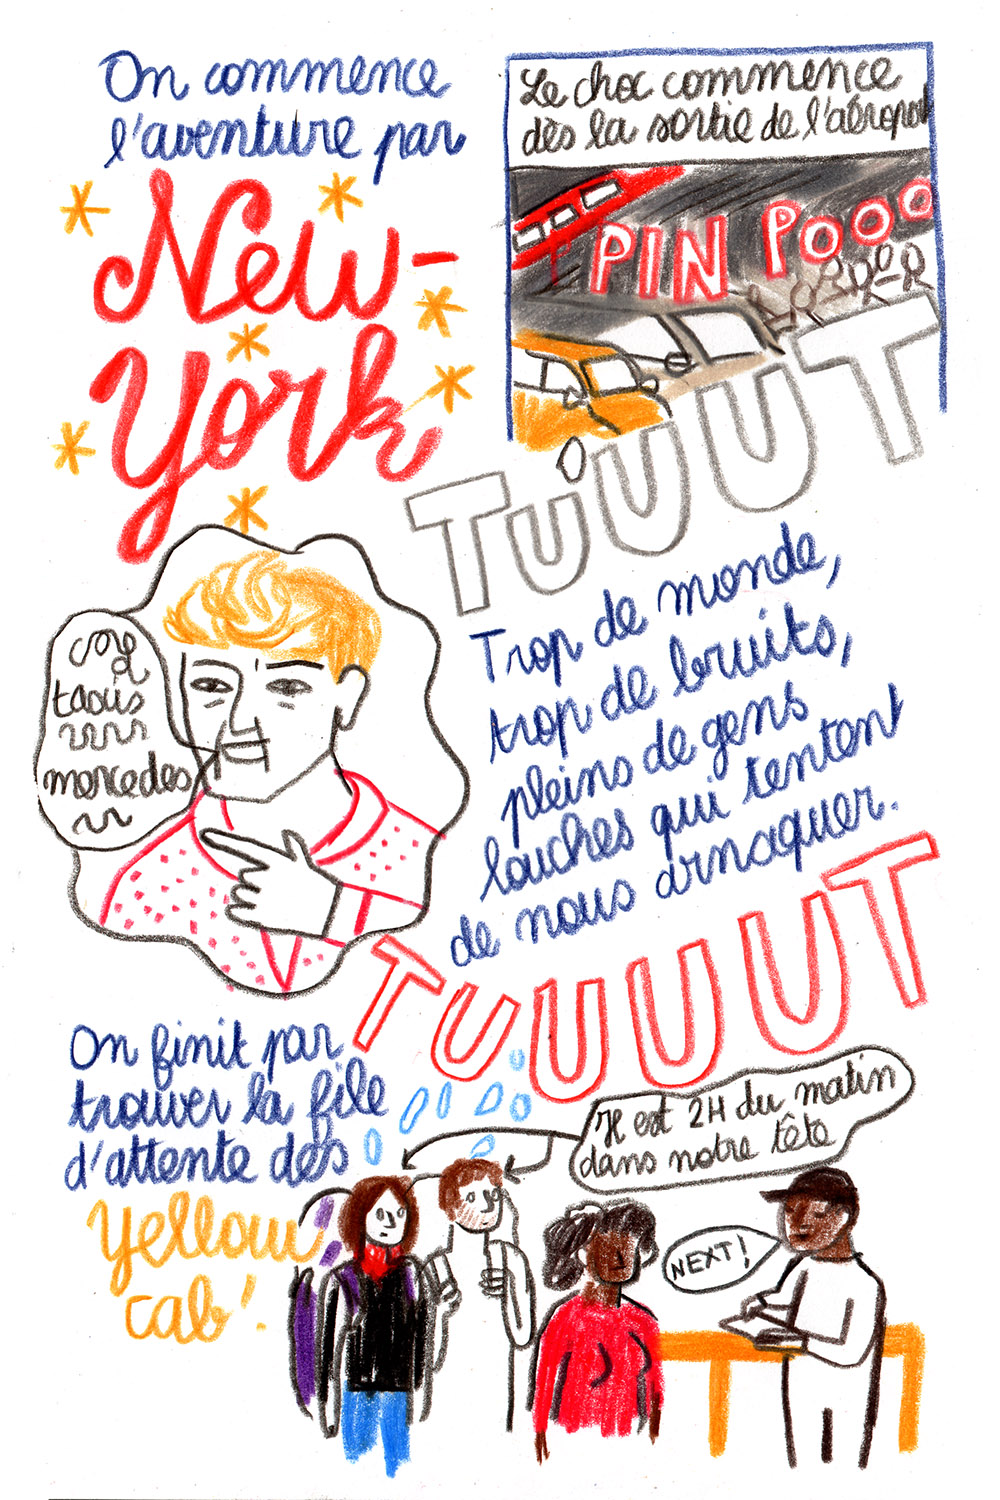 On commence
l'aventure par
New-
York
Le choc commence
dès la sortie de l'aéroport
PIN POOO
TUUUT
Trop de monde,
trop de bruits,
pleins de gens
louches qui tentent
de nous arnaquer.
taxis
mercedes
TUUUUT
On finit par
trouver la file
d'attente des
Yellow
cab !
Il est 2H du matin
dans notre tête
NEXT !